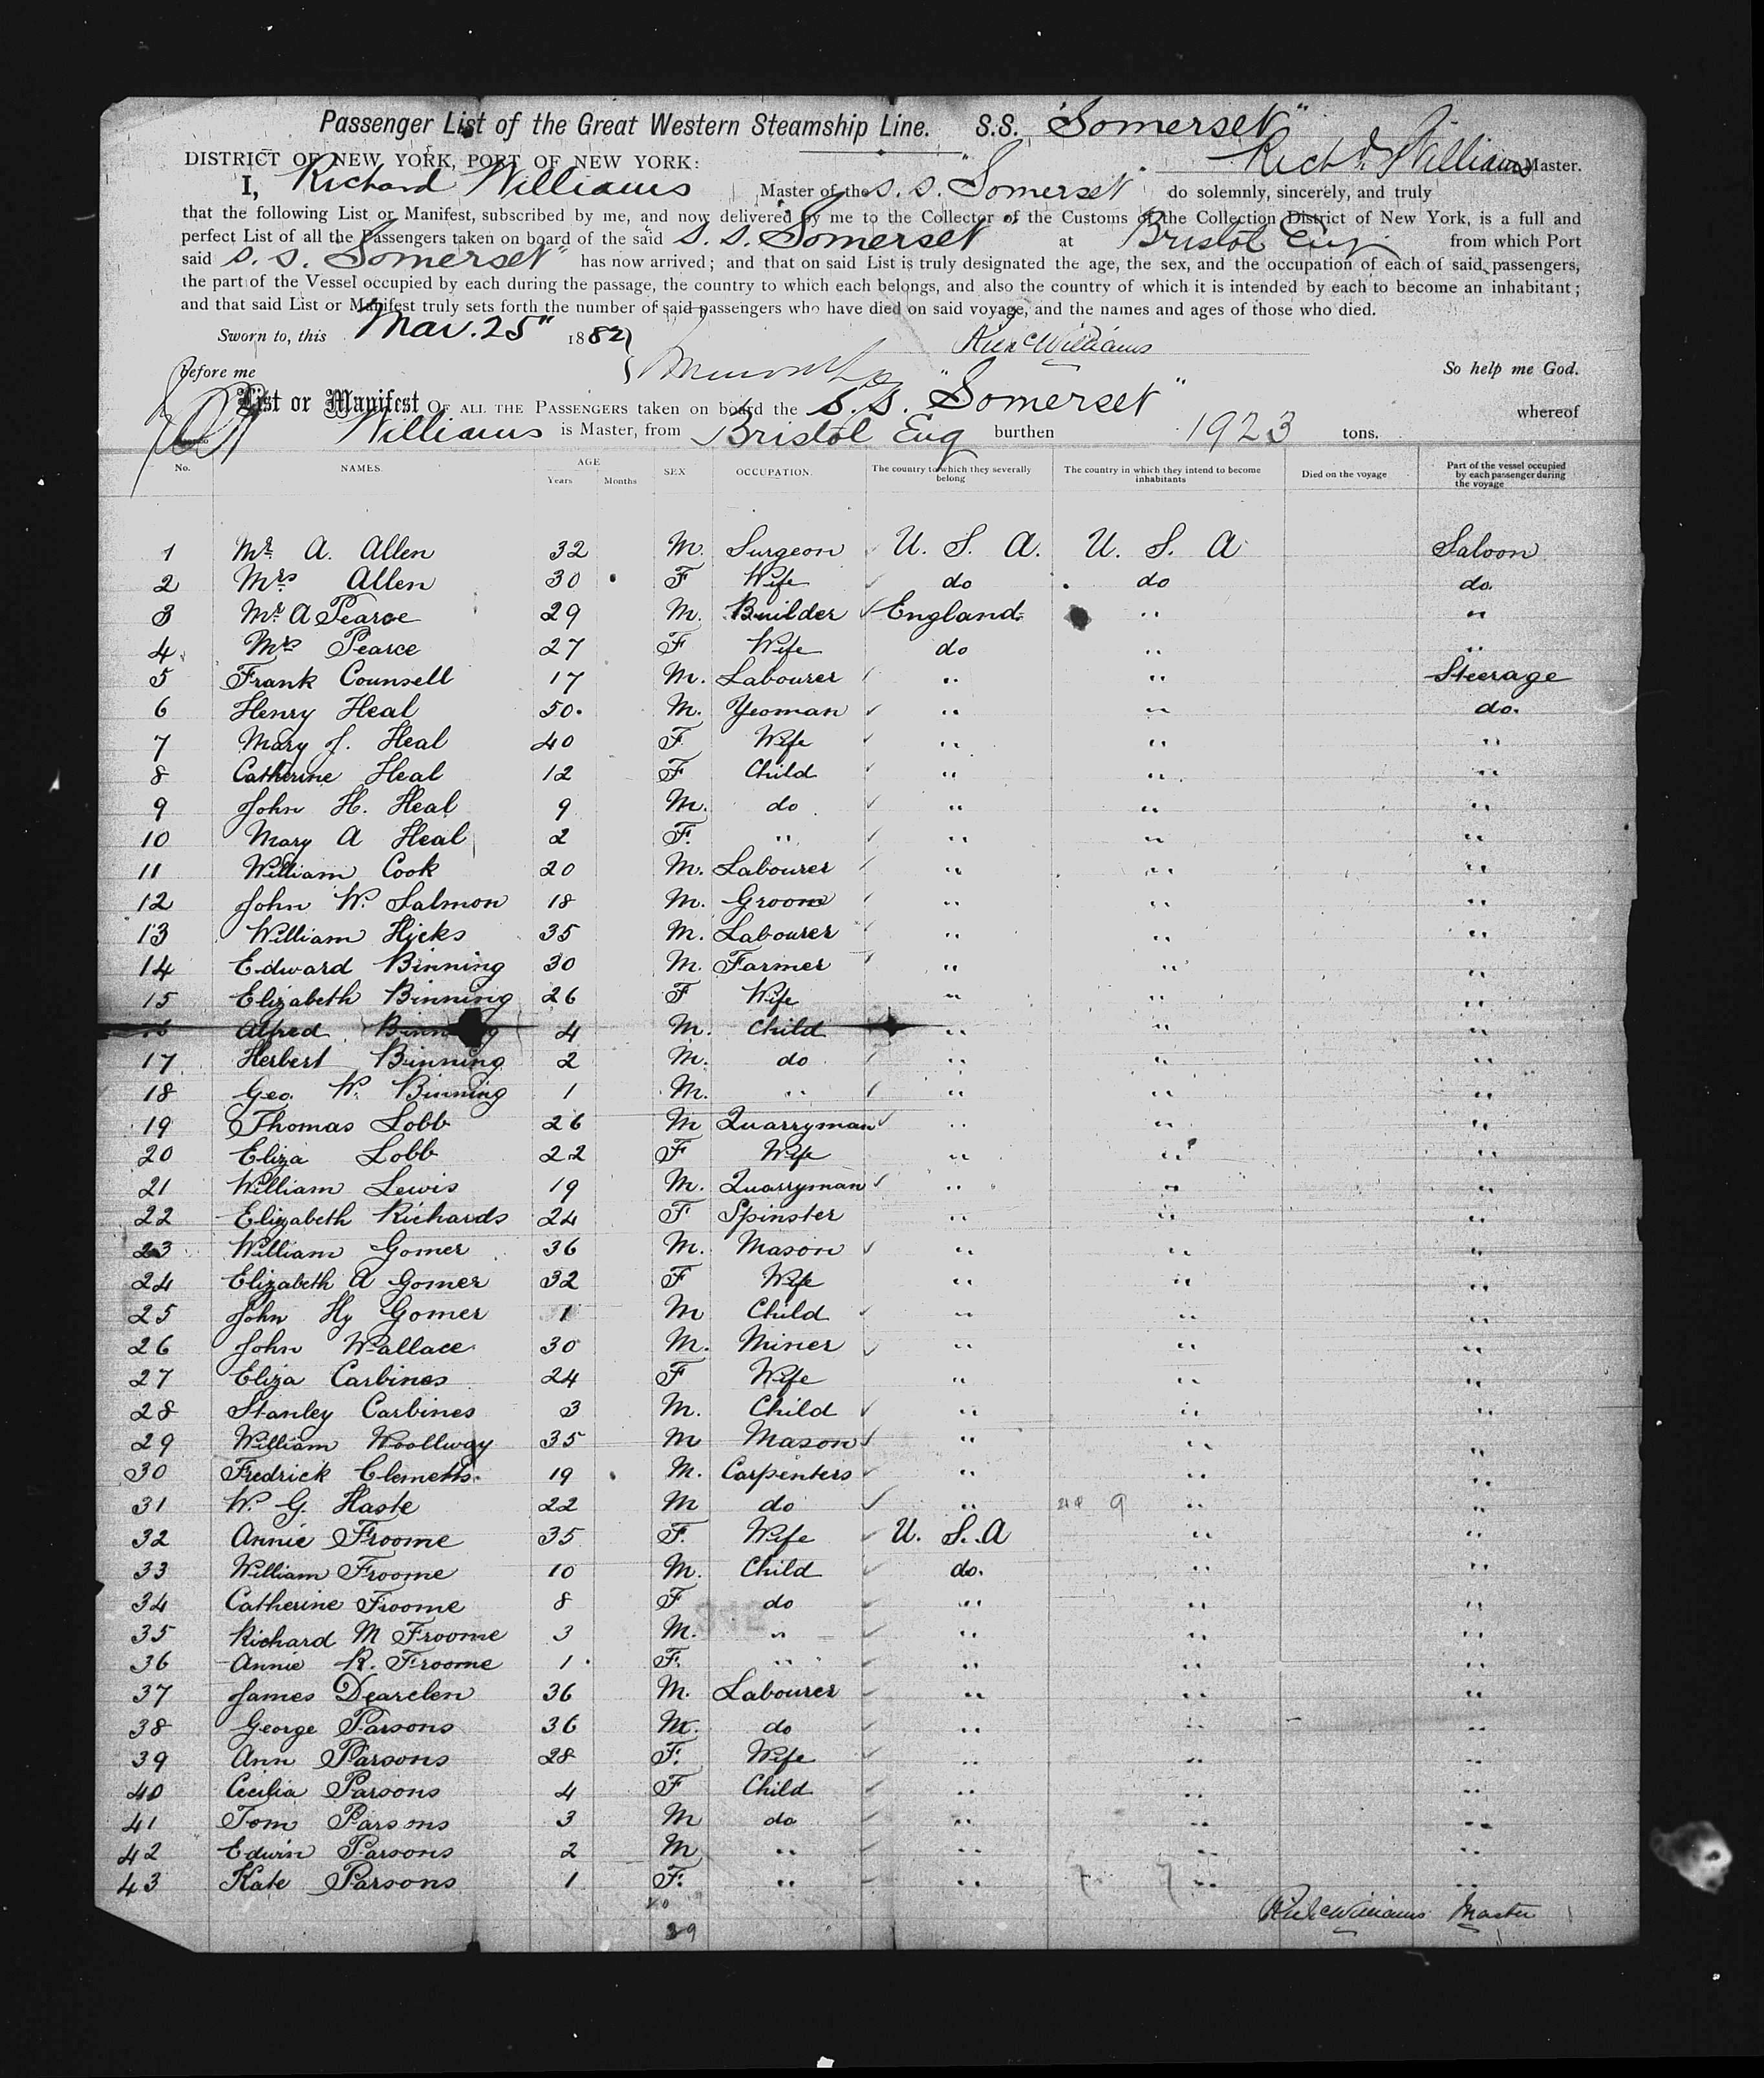 Passenger List of the Great Western Steamship Line. S.S. "Somerset"
DISTRICT OF NEW YORK, PORT OF NEW YORK: Richd Williams Master.
I, Richard Williams Master of the S.S. "Somerset do solemnly, sincerely, and truly
that the following List or Manifest, subscribed by me, and now delivered by me to the Collector of the Customs of the Collection District of New York, is a full and
perfect List of all the Passengers taken on board of the said S.S. "Somerset" at Bristol Eng from which Port
said S.S. Somerset" has now arrived; and that on said List is truly designated the age, the sex, and the occupation of each of said passengers,
the part of the Vessel occupied by each during the passage, the country to which each belongs, and also the country of which it is intended by each to become an inhabitant;
and that said List or Manifest truly sets forth the number of said passengers who have died on said voyage, and the names and ages of those who died.
Sworn to, this Mar. 25" 1882 Richd Williams
before me So help me God.
List or Manifest OF ALL THE PASSENGERS taken on board the S.S. "Somerset" whereof
Williams is Master, from Bristol Eng burthen 1923 tons.
No. NAMES. AGE Years Months SEX OCCUPATION. The country to which they severally belong The country in which they intend to become inhabitants Died on the voyage Part of the vessel occupied by each passenger during the voyage
1 Mr A. Allen 32 M. Surgeon U. S. A. U. S. A Saloon
2 Mrs Allen 30 F Wife do do do.
3 Mr A Pearce 29 M. Builder England " "
4 Mrs Pearce 27 F Wife do " "
5 Frank Counsell 17 M. Labourer " " Steerage
6 Henry Heal 50. M. Yeoman " " do.
7 Mary J. Heal 40 F Wife " " "
8 Catherine Heal 12 F Child " " "
9 John H. Heal 9 M. do " " "
10 Mary A Heal 2 F. " " " "
11 William Cook 20 M. Labourer " " "
12 John W. Salmon 18 M. Groom " " "
13 William Hicks 35 M. Labourer " " "
14 Edward Binning 30 M. Farmer " " "
15 Elizabeth Binning 26 F Wife " " "
16 Alfred Binning 4 M. Child " " "
17 Herbert Binning 2 M. do " " "
18 Geo. W. Binning 1 M. " " " "
19 Thomas Lobb 26 M Quarryman " " "
20 Eliza Lobb 22 F Wife " " "
21 William Lewis 19 M. Quarryman " " "
22 Elizabeth Richards 24 F Spinster " " "
23 William Gomer 36 M. Mason " " "
24 Elizabeth A Gomer 32 F Wife " " "
25 John Hy Gomer 1 M Child " " "
26 John Wallace 30 M. Miner " " "
27 Eliza Carbines 24 F Wife " " "
28 Stanley Carbines 3 M. Child " " "
29 William Woollway 35 M Mason " " "
30 Fredrick Clemetts 19 M. Carpenters " " "
31 W. G. Haste 22 M do " " "
32 Annie Froome 35 F. Wife U. S. A " "
33 William Froome 10 M. Child do. " "
34 Catherine Froome 8 F do " " "
35 Richard M Froome 3 M. " " " "
36 Annie R. Froome 1 F. " " " "
37 James Dearden 36 M. Labourer " " "
38 George Parsons 36 M. do " " "
39 Ann Parsons 28 F. Wife " " "
40 Cecilia Parsons 4 F Child " " "
41 Tom Parsons 3 M do " " "
42 Edwin Parsons 2 M " " " "
43 Kate Parsons 1 F. " " " "
Richd Williams Master
39